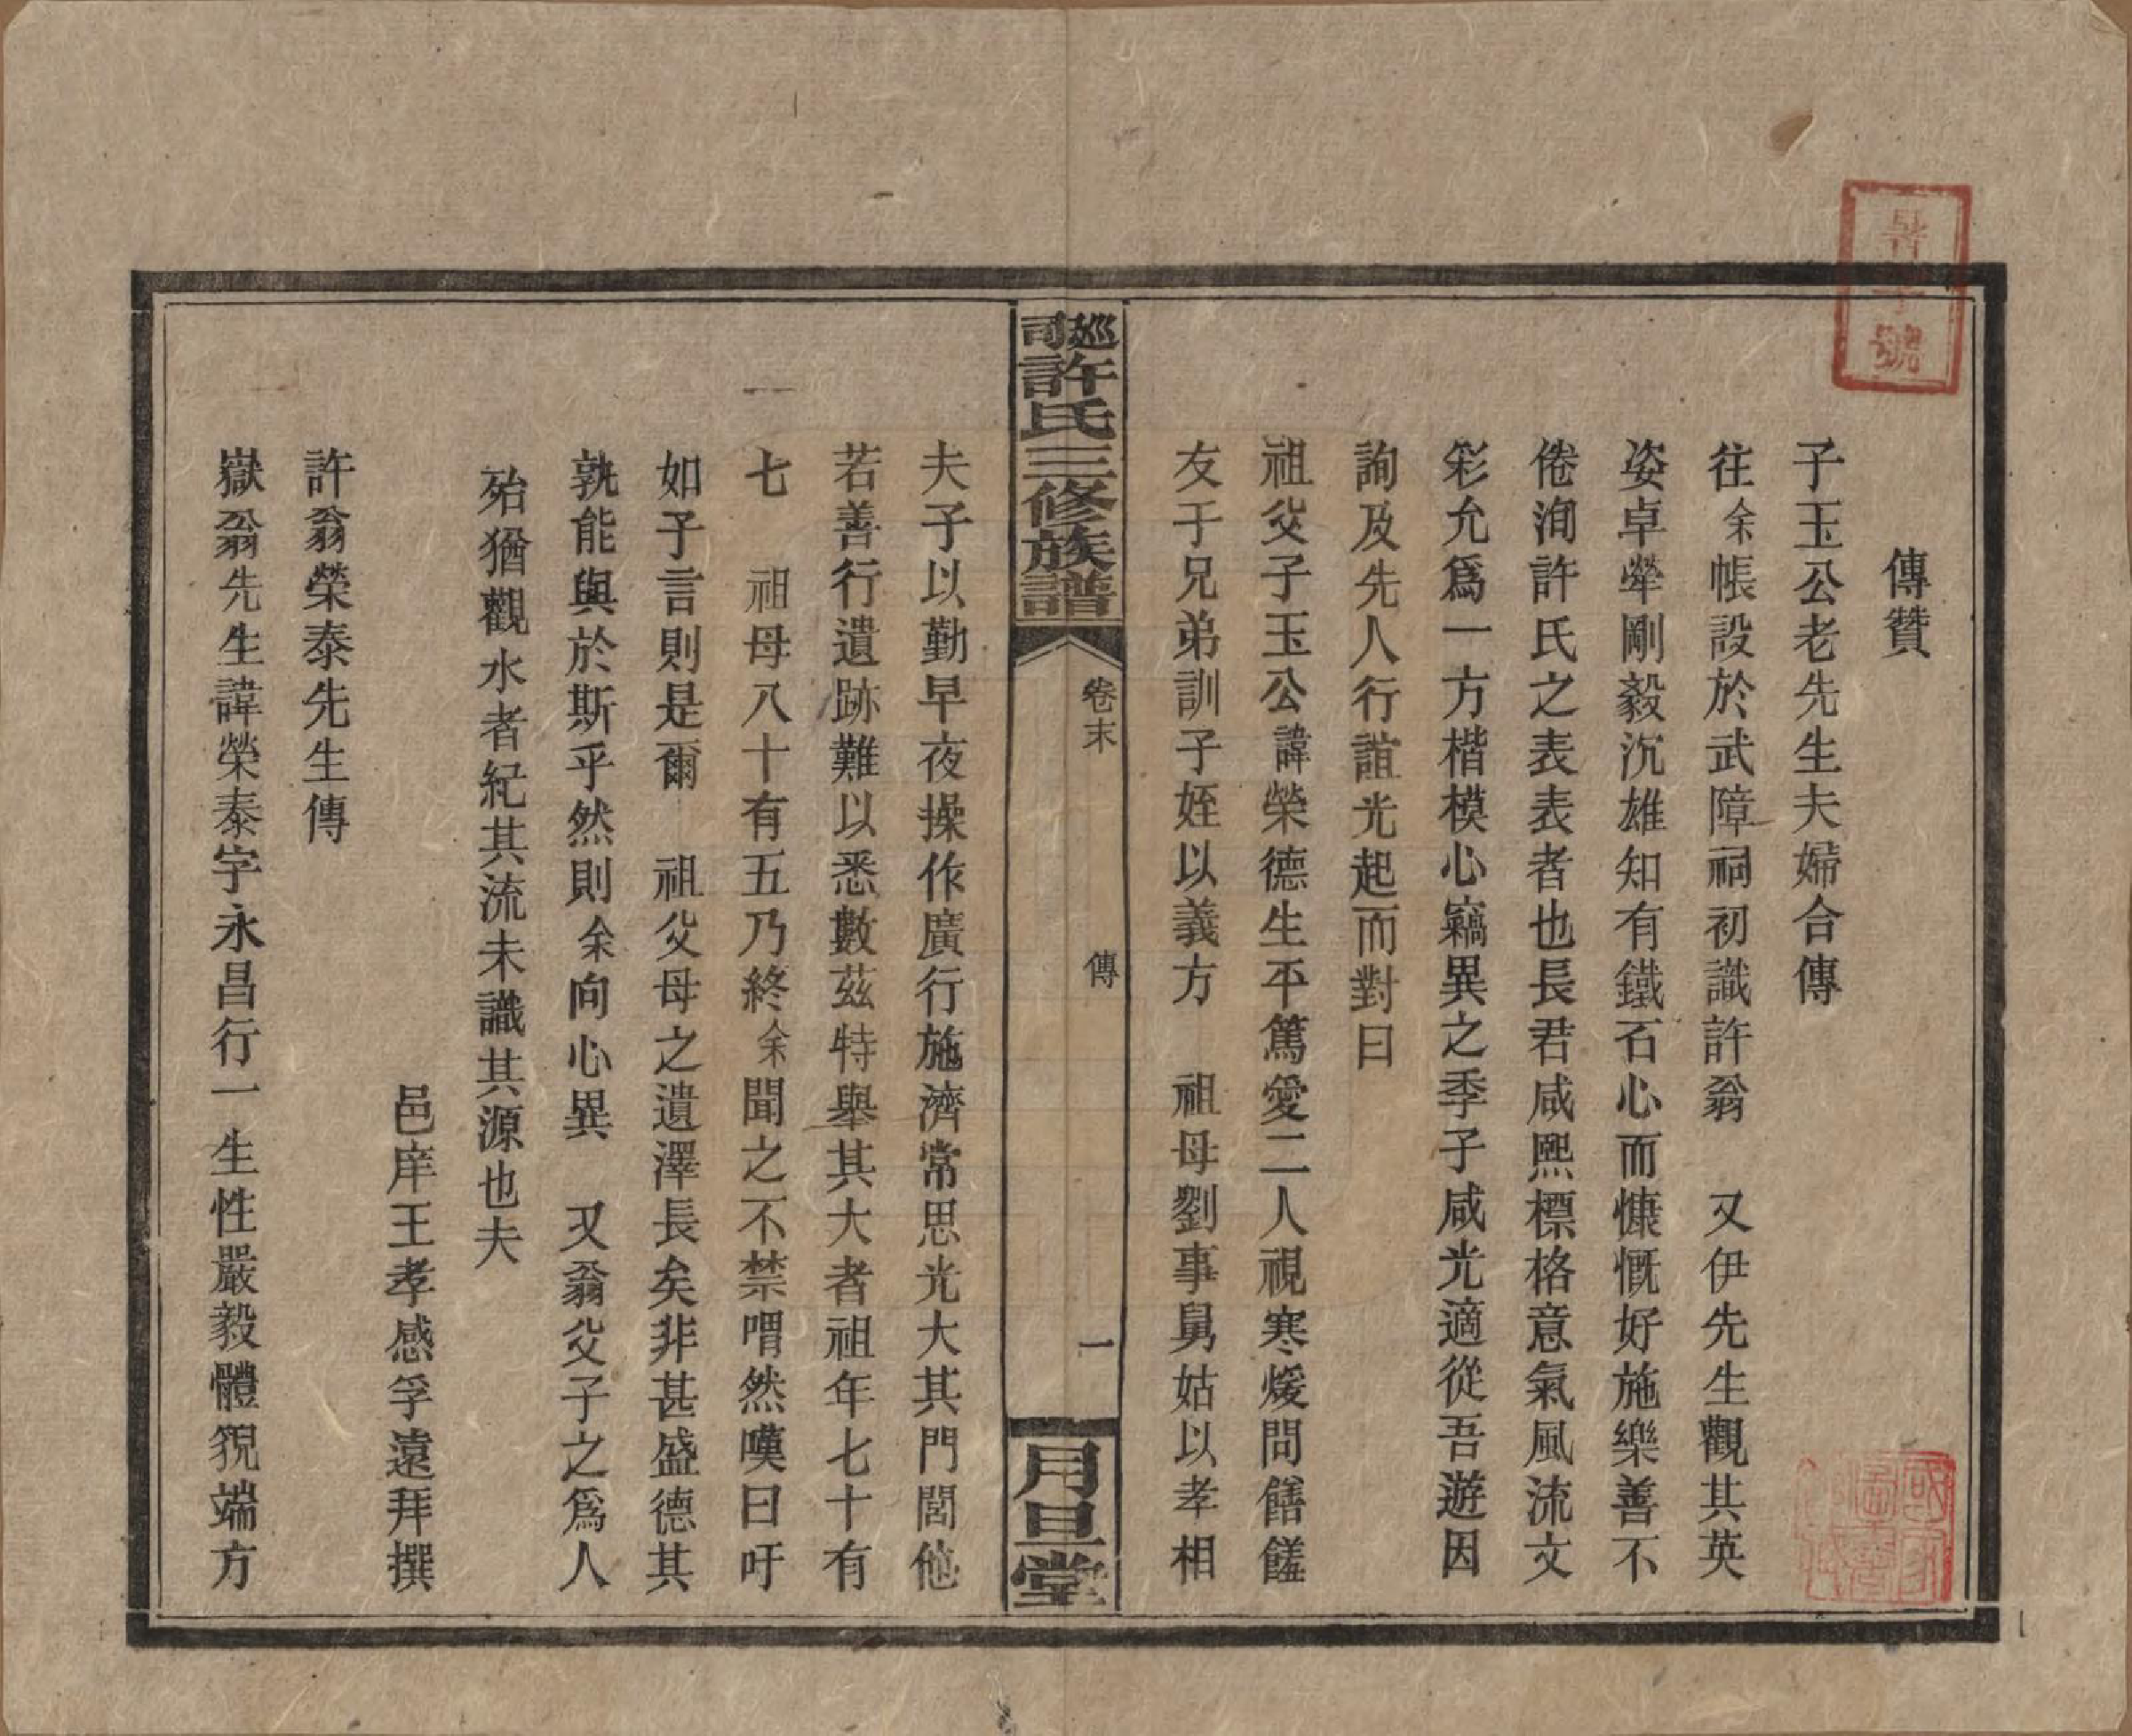 傳贊
子玉公老先生夫婦合傳
往余帳設於武障祠初識許翁　又伊先生觀其英
姿卓犖剛毅沉雄知有鐵石心而慷慨好施樂善不
倦洵許氏之表表者也長君咸熙標格意氣風流文
彩允爲一方楷模心竊異之季子咸光適從吾遊因
詢及先人行誼光起而對曰
祖父子玉公諱榮德生平篤愛二人視寒煖問饍饈
友于兄弟訓子姪以義方　祖母劉事舅姑以孝相
巡司許氏三修族譜　卷末　傳　一　月旦堂
夫子以勤早夜操作廣行施濟常思光大其門閭他
若善行遺跡難以悉數茲特舉其大者祖年七十有
七　祖母八十有五乃終余聞之不禁喟然嘆曰吁
如子言則是爾　祖父母之遺澤長矣非甚盛德其
孰能與於斯乎然則余向心異　又翁父子之爲人
殆猶觀水者紀其流未識其源也夫
邑庠王孝感孚遠拜撰
許翁榮泰先生傳
嶽翁先生諱榮泰字永昌行一生性嚴毅體貌端方
號